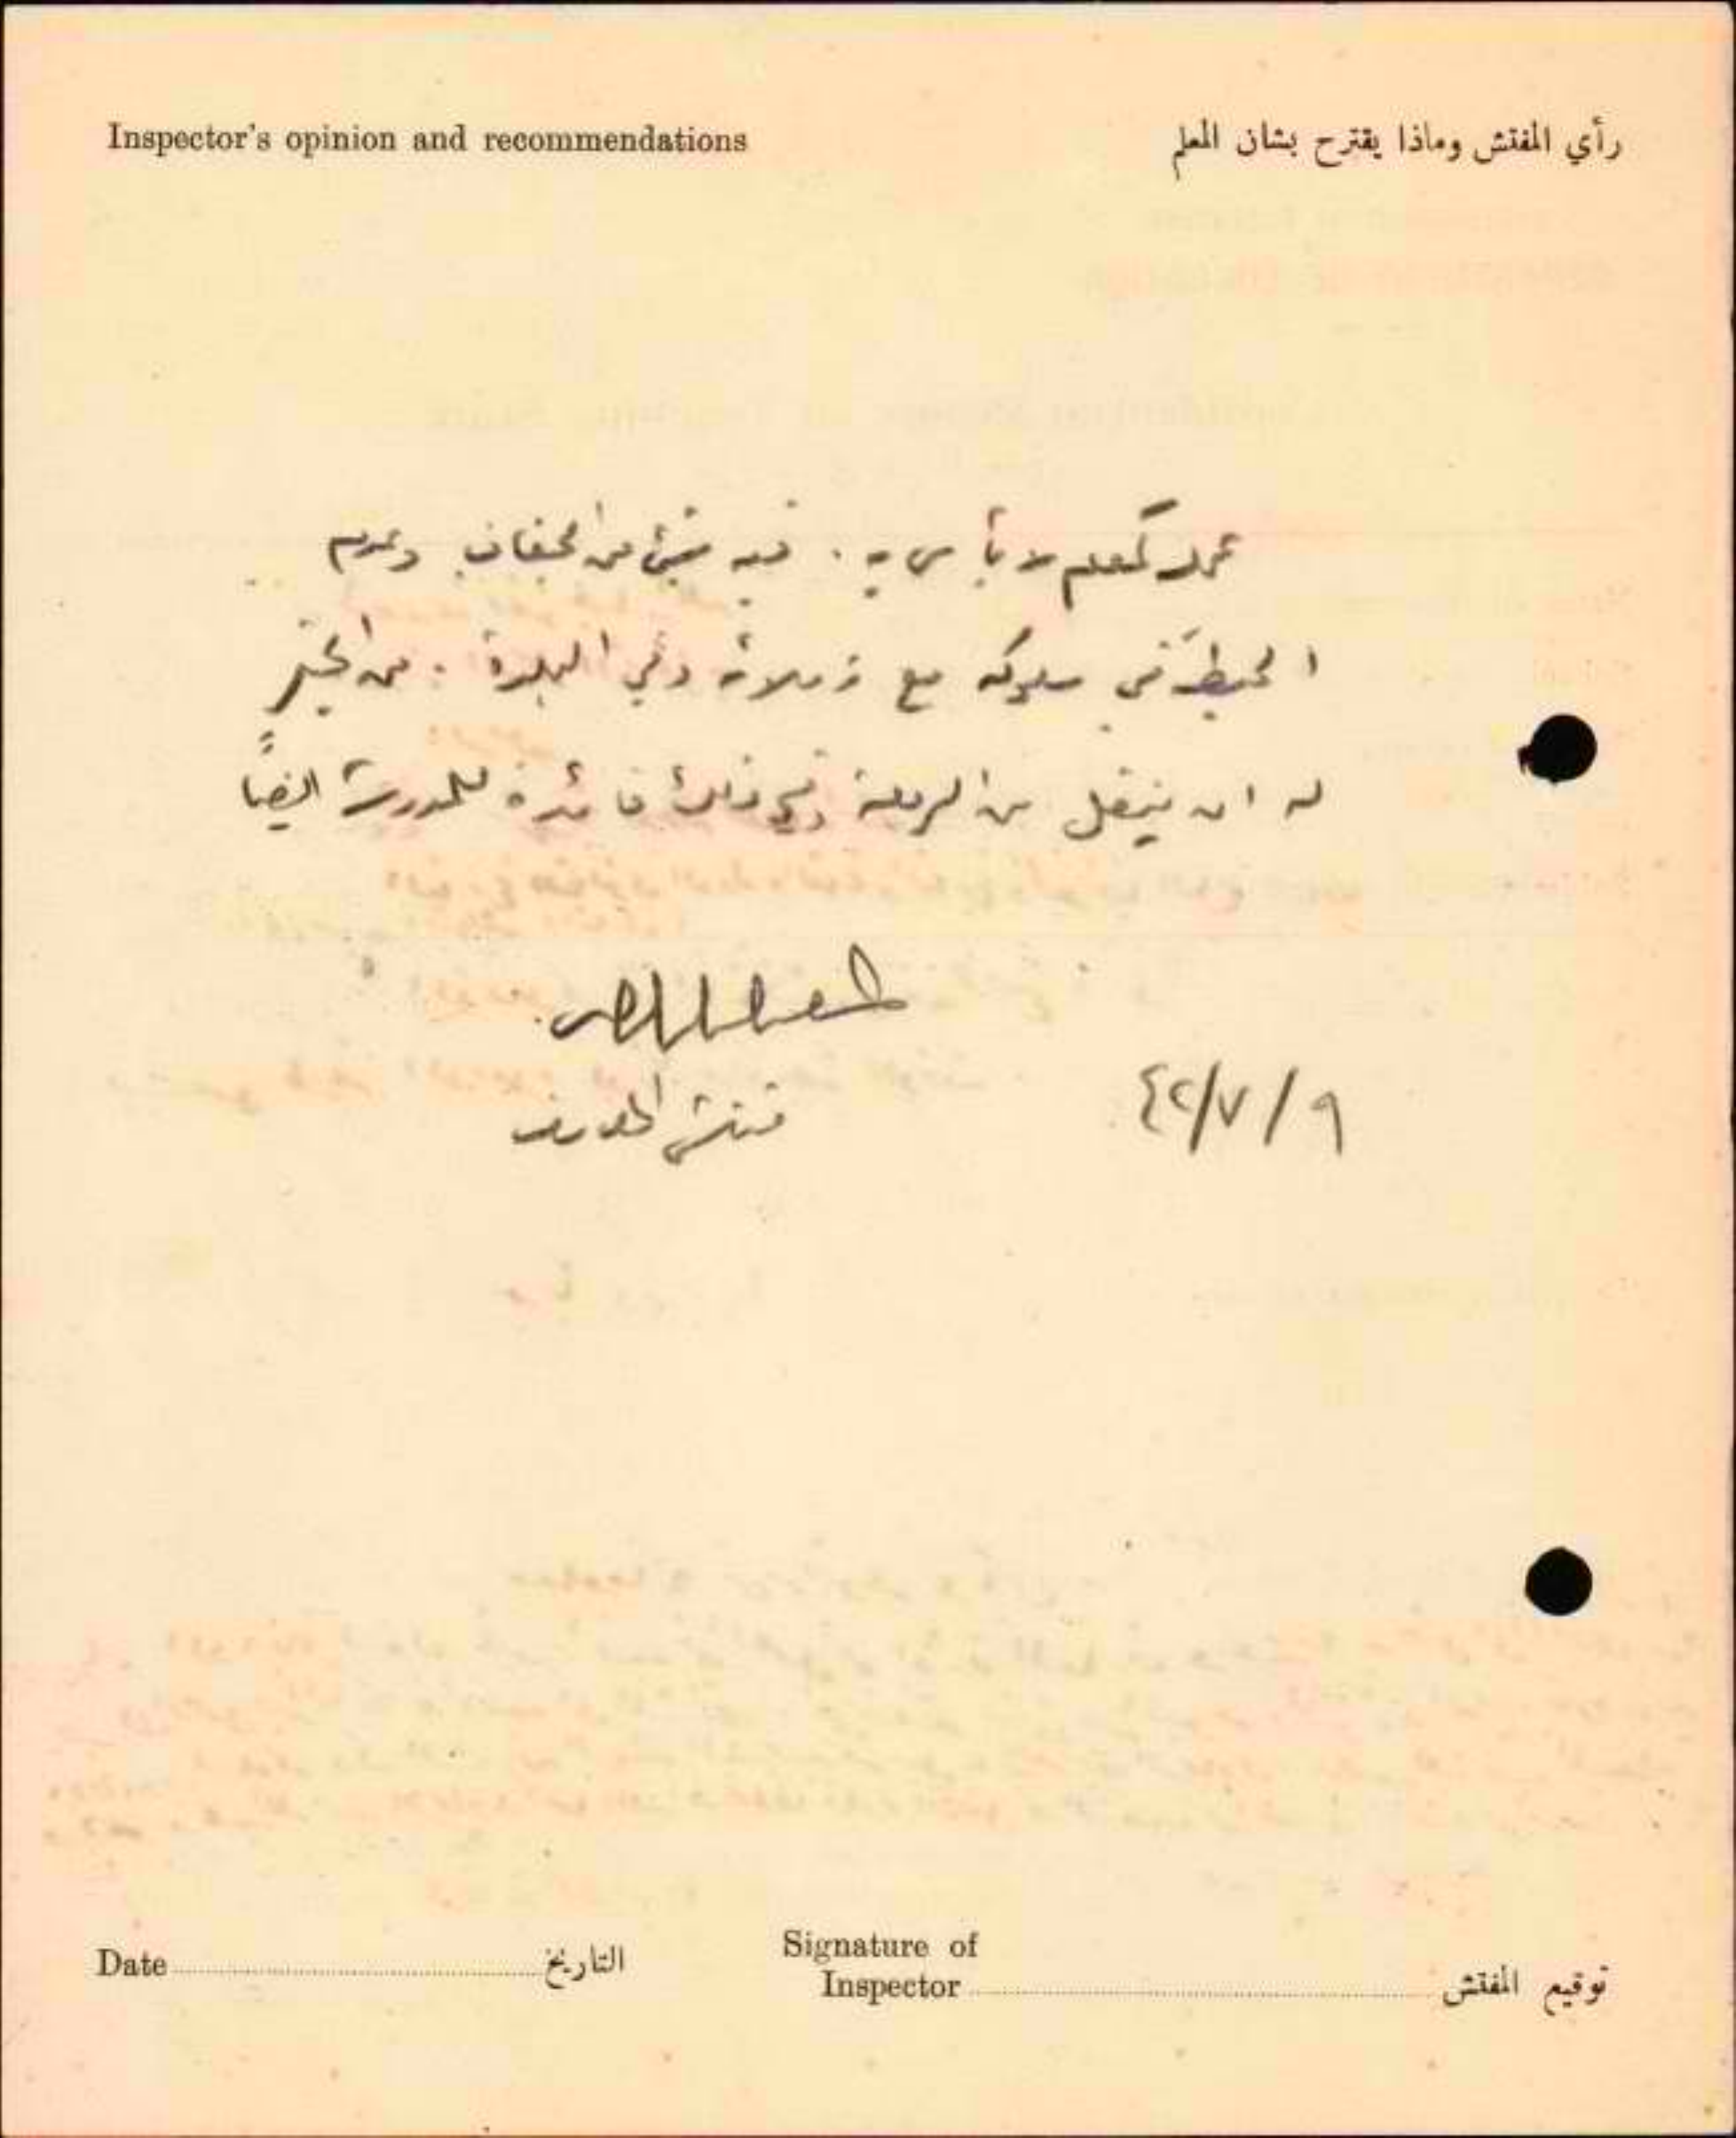 Inspector's opinion and recommendations
رأي المفتش وماذا يقترح بشان المعلم
عمله كمعلم لا بأس به . فيه شيء من الجفاف وعدم
الحيطة في سلوكه مع زملائه وفي البلدة . من الخير
له ان ينقل من الرملة وفي ذلك فائدة للمدرسة ايضاً
مفتش المعارف
٤٢/٧/٩
Date التاريخ
Signature of
Inspector توقيع المفتش